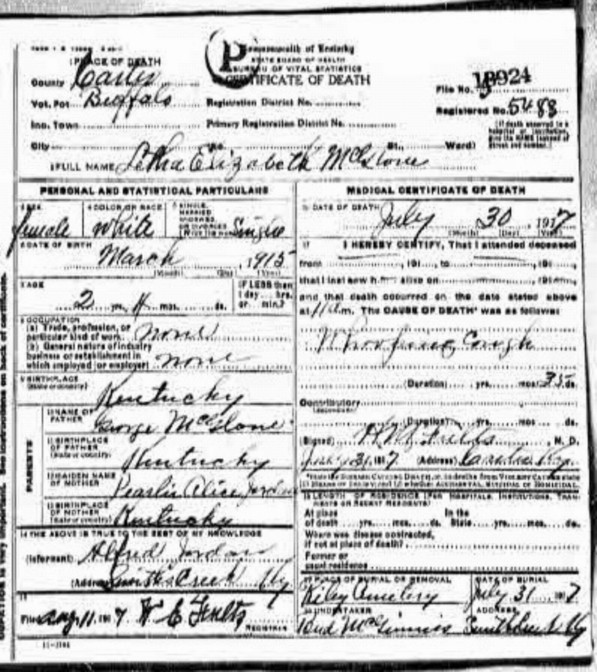 PLACE OF DEATH
County Carter
Vot. Pct Buffalo
Inc. Town
City
Commonwealth of Kentucky
STATE BOARD OF HEALTH
BUREAU OF VITAL STATISTICS
CERTIFICATE OF DEATH
Registration District No.
Primary Registration District No.
No. St. Ward)
File No. 18924
Registered No. 5488
(If death occurred in a hospital or institution, give the NAME instead of street and number.)
FULL NAME Letha Elizabeth McGlone
PERSONAL AND STATISTICAL PARTICULARS
SEX female
COLOR OR RACE white
SINGLE, MARRIED, WIDOWED, OR DIVORCED (Write the word) Single
DATE OF BIRTH
March 1915
(Month) (Day) (Year)
AGE
2 yrs. 4 mos. ds.
IF LESS than 1 day hrs. or min.?
OCCUPATION
(a) Trade, profession, or particular kind of work none
(b) General nature of industry business or establishment in which employed (or employer) none
BIRTHPLACE
(State or country) Kentucky
PARENTS
NAME OF FATHER George McGlone
BIRTHPLACE OF FATHER
(State or country) Kentucky
MAIDEN NAME OF MOTHER Pearlie Alice Jordan
BIRTHPLACE OF MOTHER
(State or country) Kentucky
THE ABOVE IS TRUE TO THE BEST OF MY KNOWLEDGE
(Informant) Alfred Jordan
(Address) Smiths Creek Ky
Filed Aug 11 1917 W E Fultz
REGISTRAR
MEDICAL CERTIFICATE OF DEATH
DATE OF DEATH July 30 1917
(Month) (Day) (Year)
I HEREBY CERTIFY, That I attended deceased
from 191 to 191
that I last saw h alive on 191
and that death occurred on the date stated above
at 11 a.m. The CAUSE OF DEATH* was as follows:
Whooping Cough
(Duration) yrs. mos. 35 ds.
Contributory
(Secondary)
(Duration) yrs. mos. ds.
(Signed) M. D.
July 31, 1917 (Address)
LENGTH OF RESIDENCE (For Hospitals, Institutions, Transients or Recent Residents)
At place of death yrs. mos. ds. In the State yrs. mos. ds.
Where was disease contracted,
if not at place of death?
Former or
usual residence
PLACE OF BURIAL OR REMOVAL
DATE OF BURIAL
July 31 1917
UNDERTAKER
Bud McGinnis
ADDRESS
Smiths Creek Ky